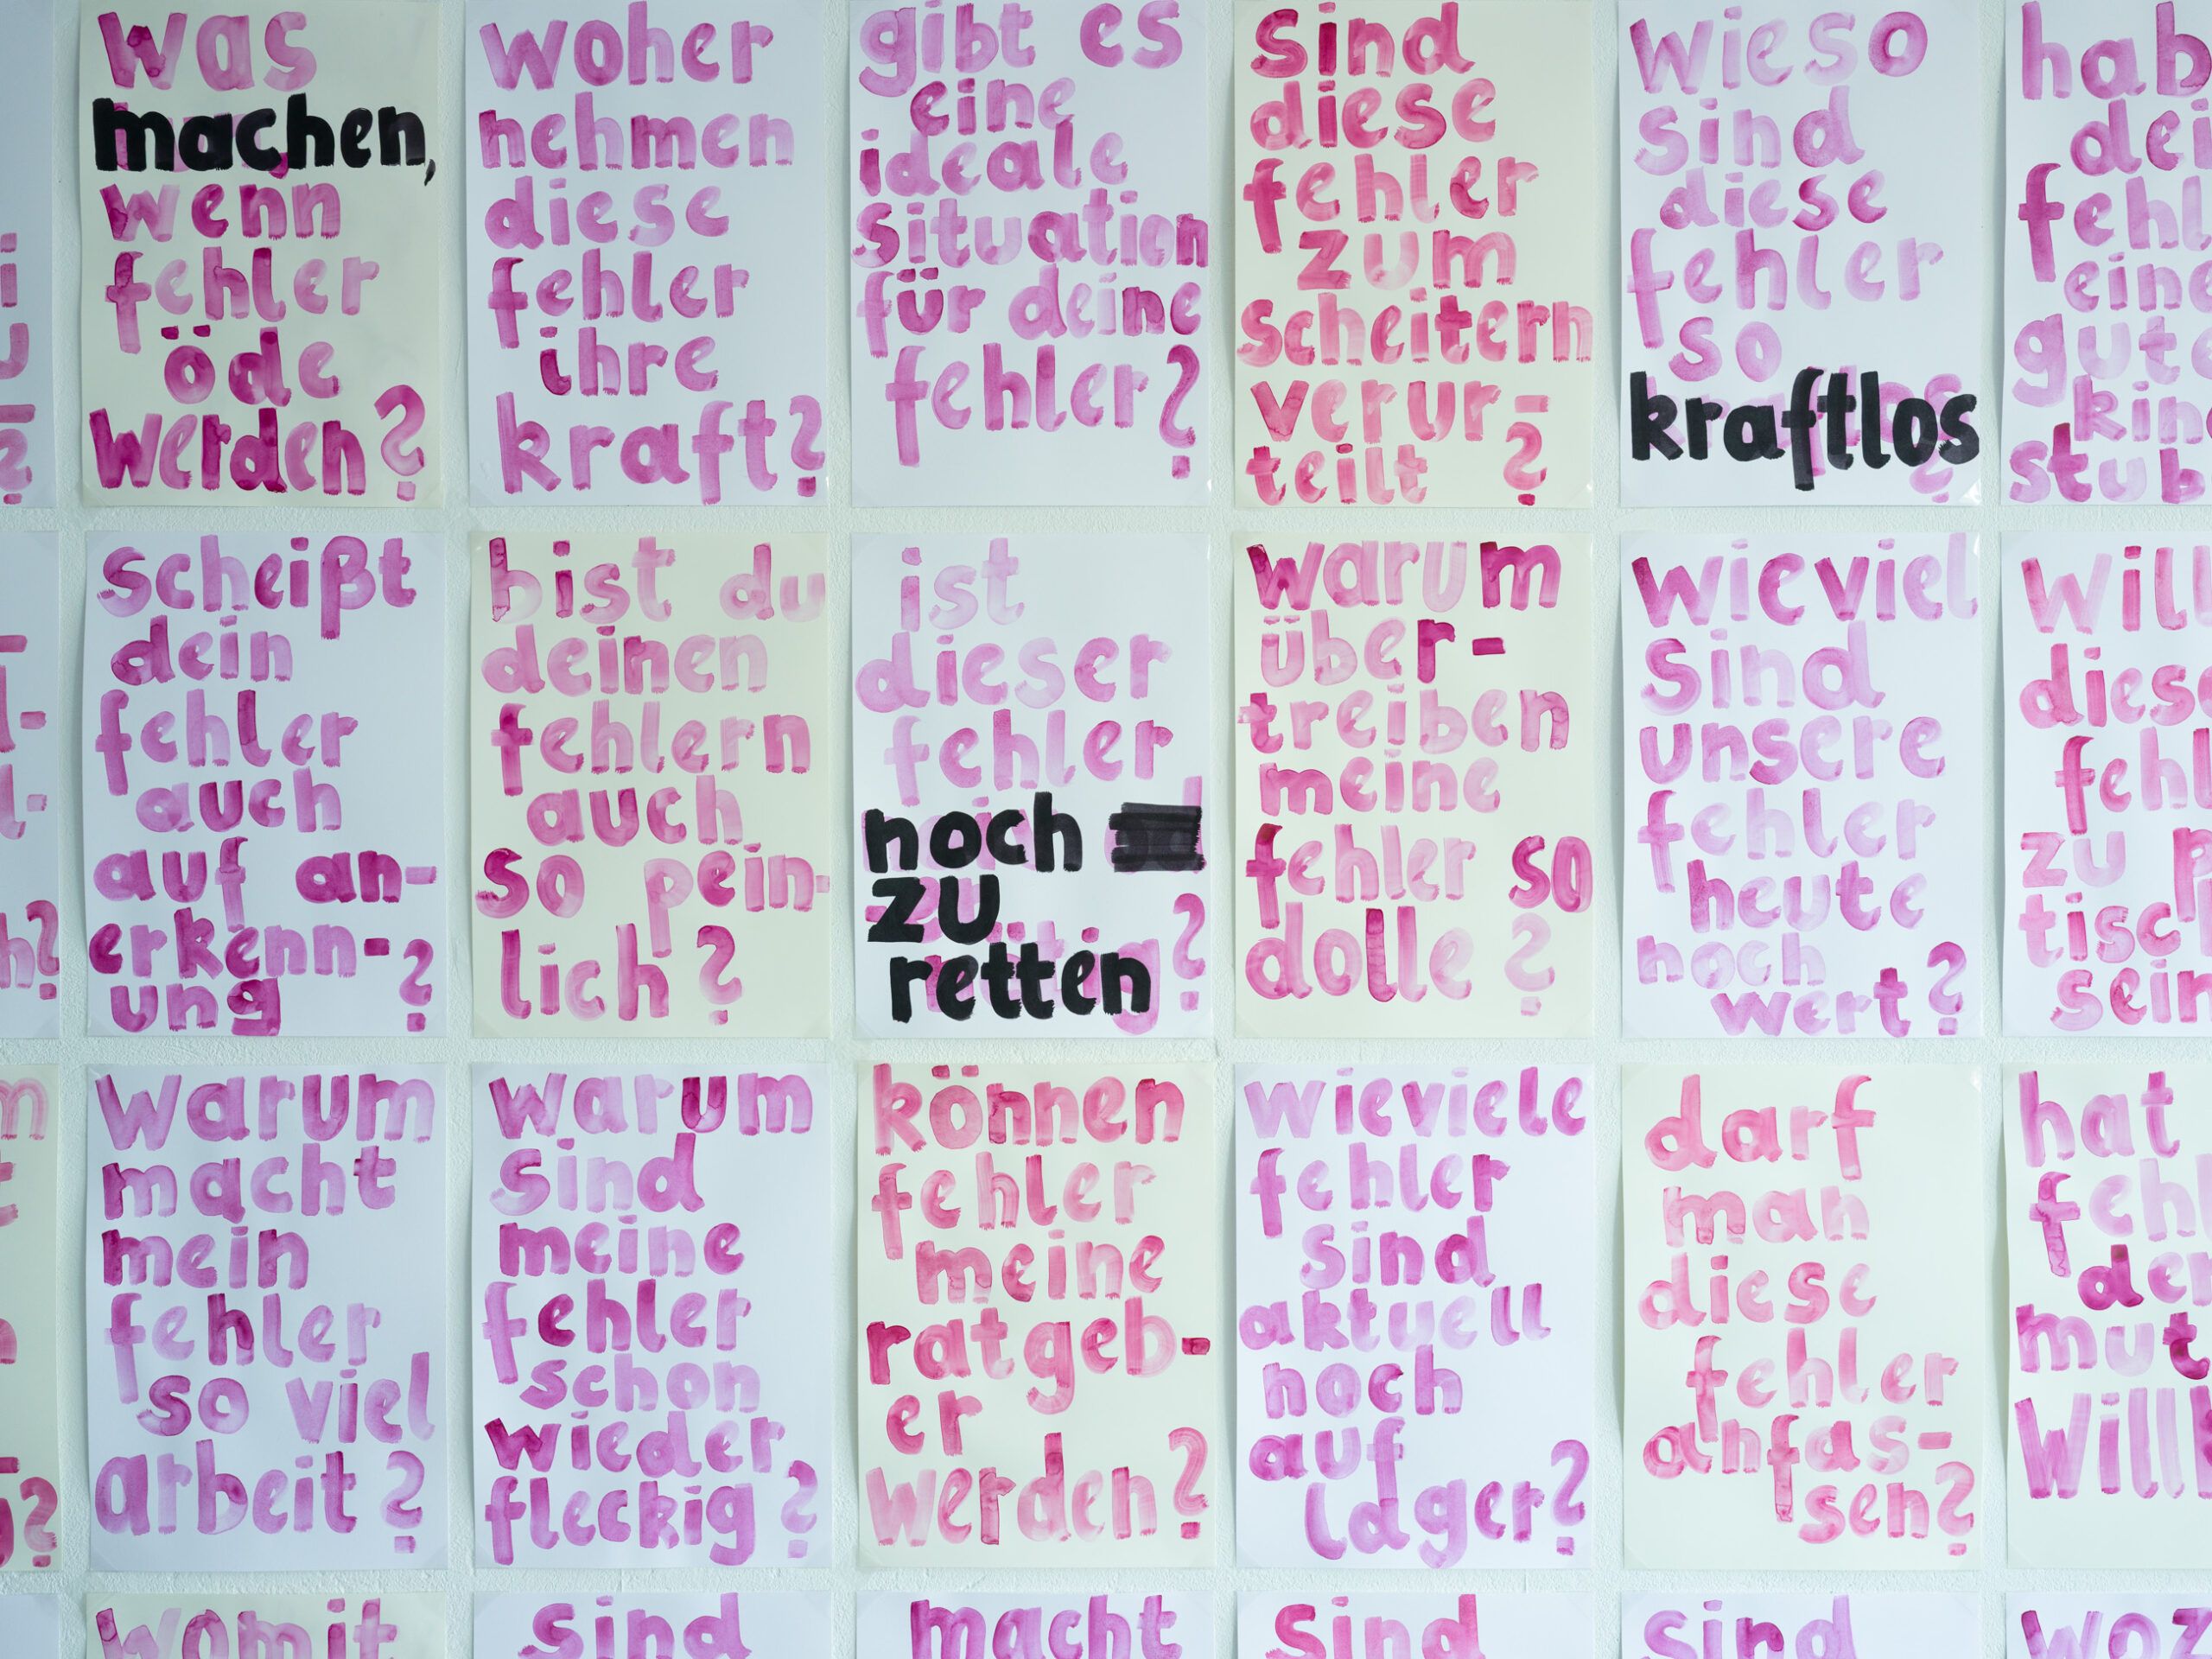 was
machen,
wenn
fehler
öde
werden?
woher
nehmen
diese
fehler
ihre
kraft?
gibt es
eine
ideale
situation
für deine
fehler?
sind
diese
fehler
zum
scheitern
verur-
teilt ?
wieso
sind
diese
fehler
so
kraftlos
?
scheißt
dein
fehler
auch
auf an-
erkenn-
ung ?
bist du
deinen
fehlern
auch
so pein-
lich?
ist
dieser
fehler
noch
zu
retten ?
warum
über-
treiben
meine
fehler so
dolle ?
wieviel
sind
unsere
fehler
heute
noch
wert?
will
warum
macht
mein
fehler
so viel
arbeit ?
warum
sind
meine
fehler
schon
wieder
fleckig ?
können
fehler
meine
ratgeb-
er
werden?
wieviele
fehler
sind
aktuell
noch
auf
lager?
darf
man
diese
fehler
anfas-
sen?
hat
womit
sind
macht
sind
sind